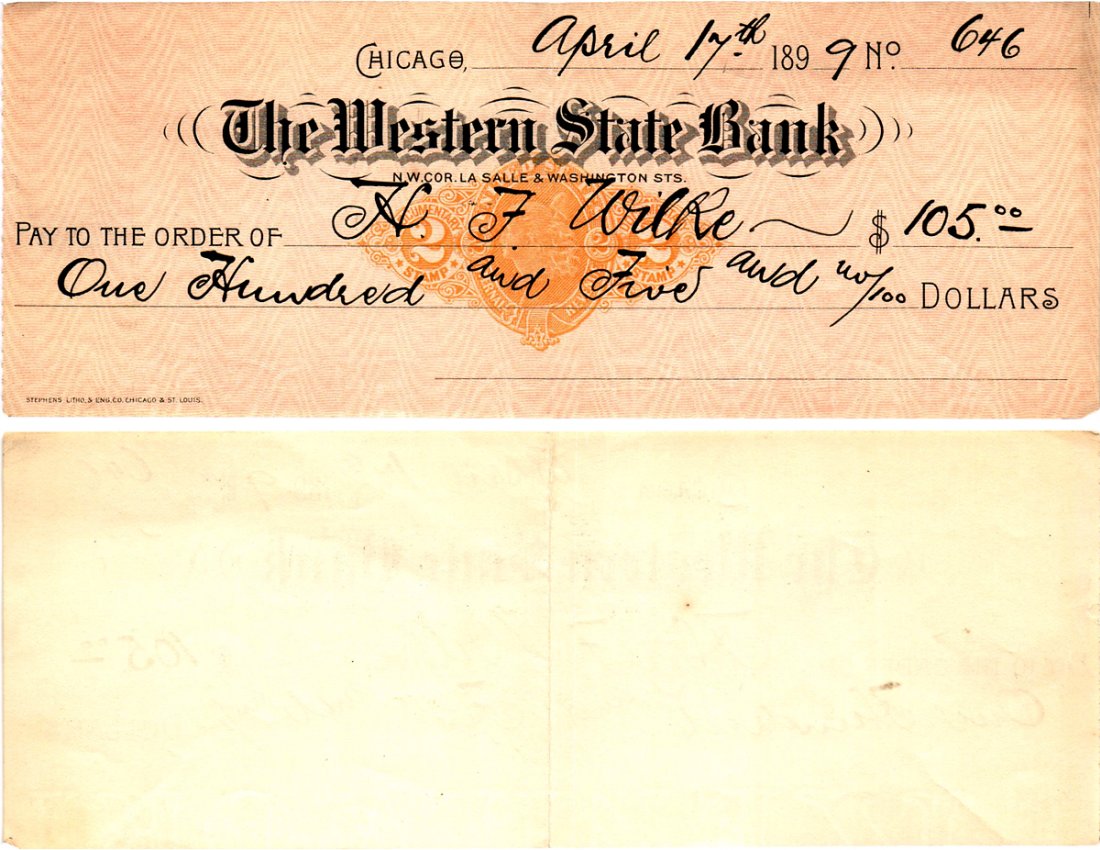 CHICAGO, April 17th 1899 No. 646
The Western State Bank
N.W. COR. LA SALLE & WASHINGTON STS.
PAY TO THE ORDER OF H. F. Wilke $ 105.00
DOCUMENTARY 2 STAMP 2 STAMP
One Hundred and Five and no/100 DOLLARS
STEPHENS LITHO. & ENG. CO. CHICAGO & ST. LOUIS.